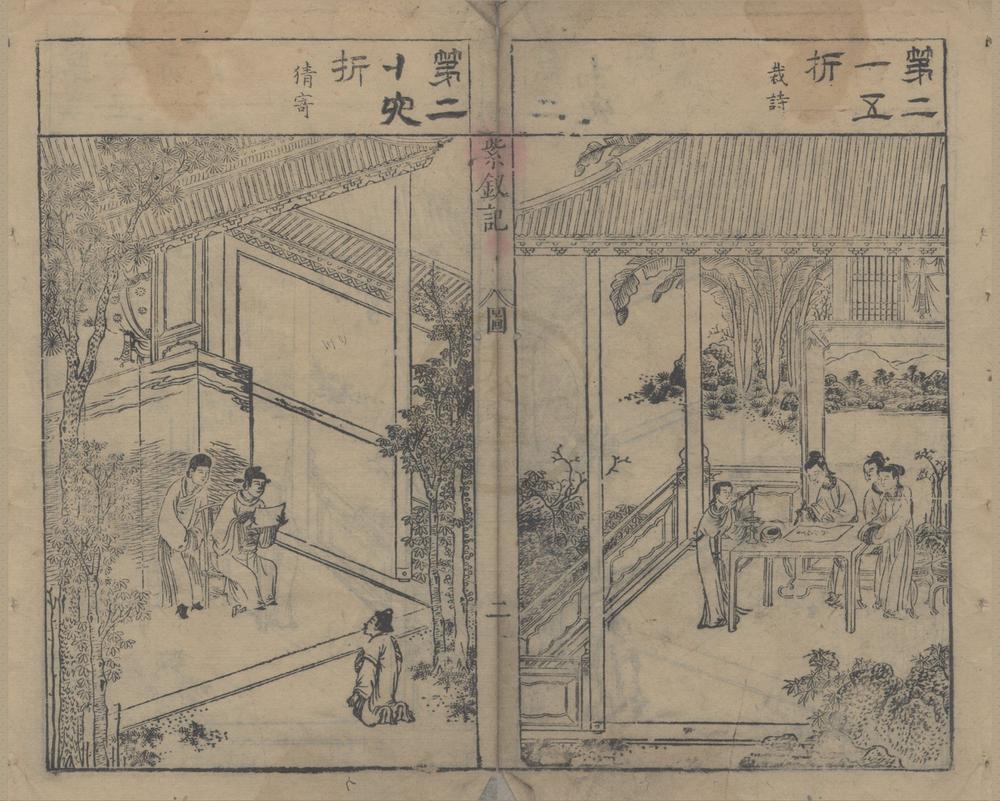 第二
十五
折
裁詩
紫釵記
圖
二
第二
十六
折
猜寄